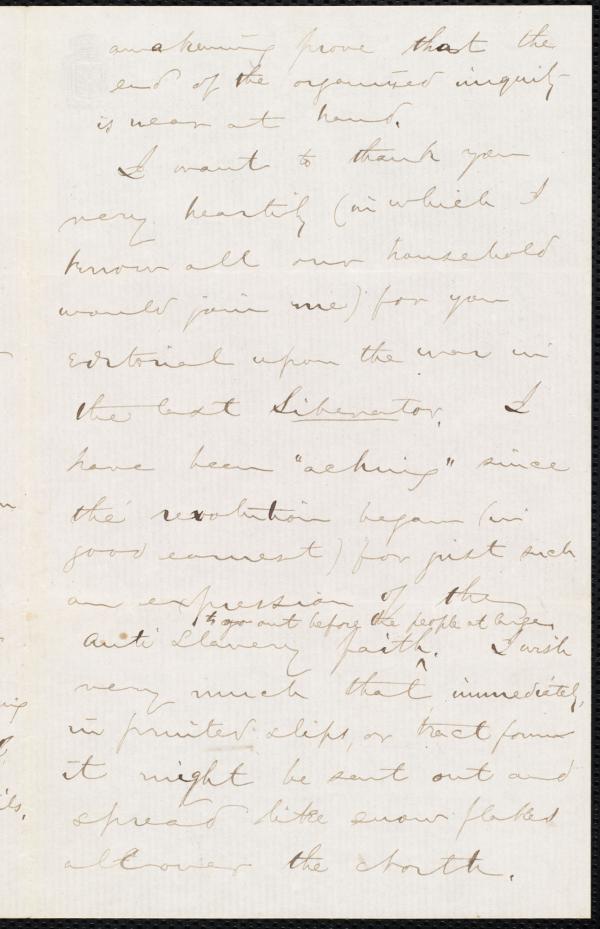 awakening prove that the
end of the organized iniquity
is near at hand.
I want to thank you
very heartily (in which I
know all our household
would join me) for you
editorial upon the war in
the last Liberator. I
have been "aching" since
the revolution began (in
good earnest) for just such
an expression of the
to go out before the people at large.
Anti Slavery faith. I wish
very much that immediately,
in printed slips, or tract form
it might be sent out and
spread like snow flakes
all over the North.